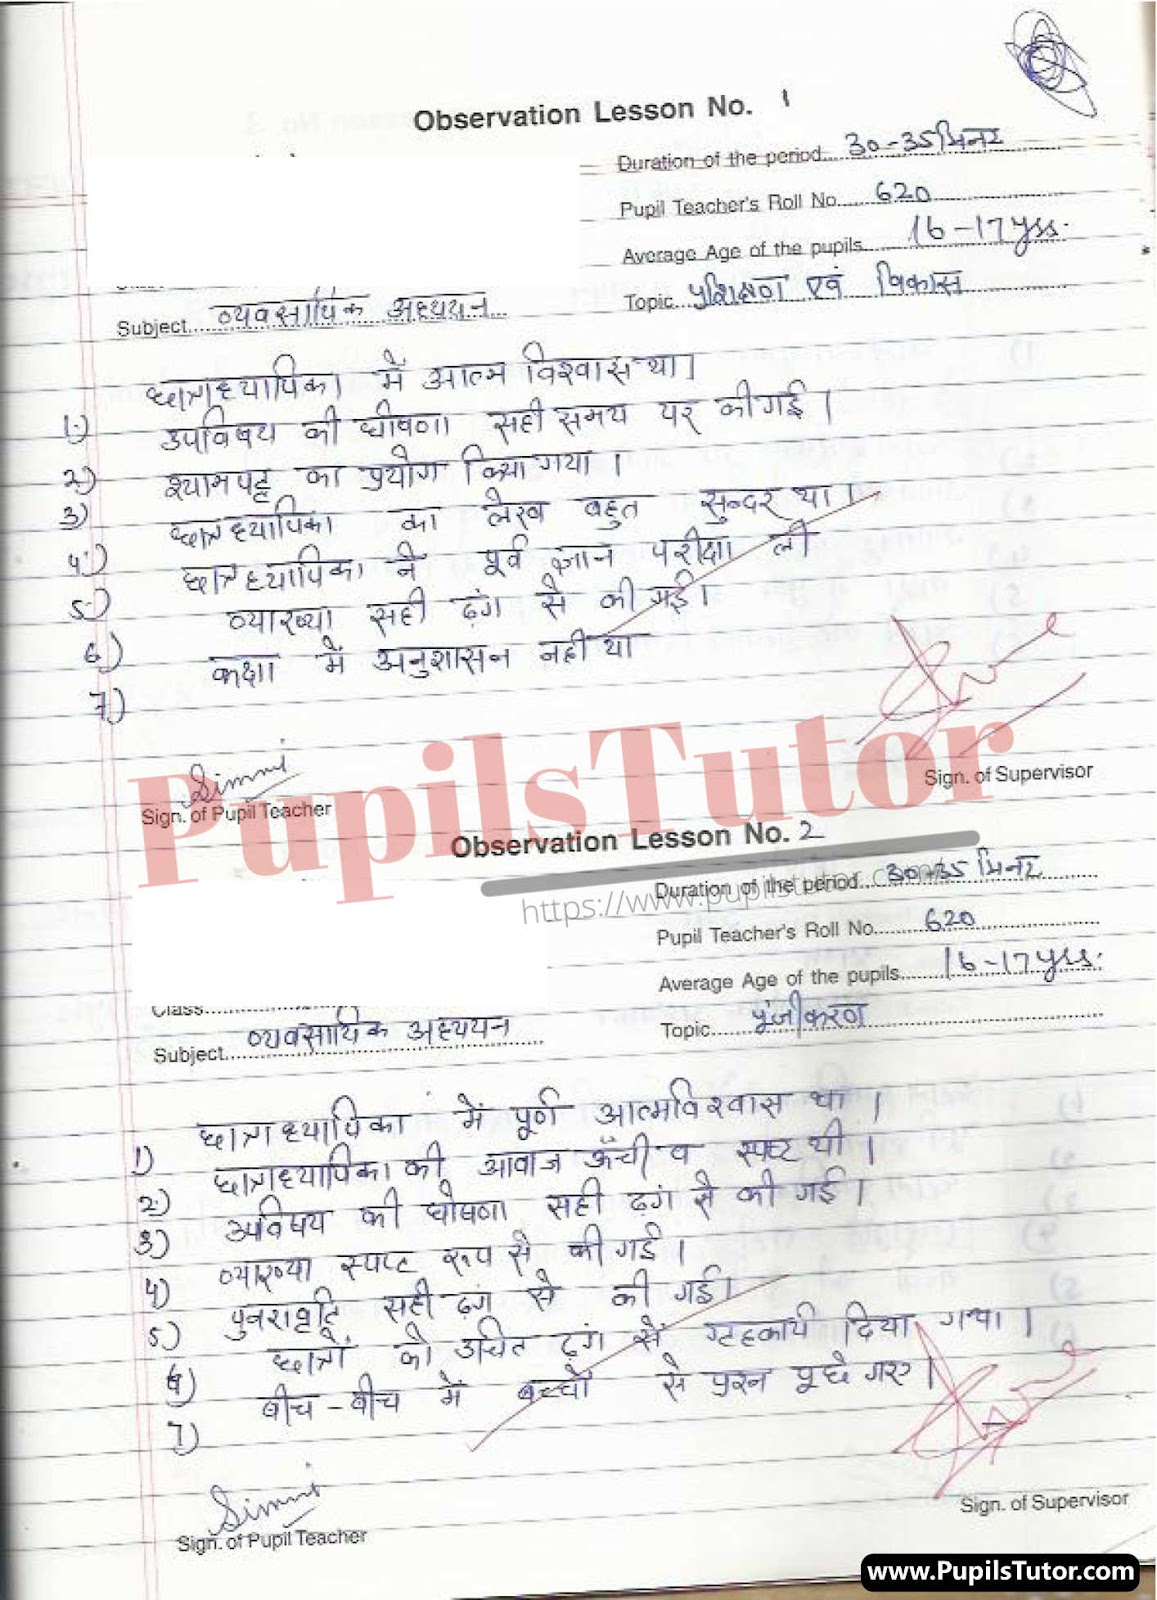 Observation Lesson No. 1
Duration of the period 30-35 मिनट
Pupil Teacher's Roll No. 620
Average Age of the pupils 16-17 yrs.
Subject व्यवसायिक अध्ययन
Topic प्रशिक्षण एवं विकास
1) छात्राध्यापिका में आत्म विश्वास था।
2) उपविषय की घोषणा सही समय पर की गई।
3) श्यामपट्ट का प्रयोग किया गया।
4) छात्राध्यापिका का लेख बहुत सुन्दर था।
5) छात्राध्यापिका ने पूर्व ज्ञान परीक्षा ली
6) व्याख्या सही ढ़ंग से की गई।
7) कक्षा में अनुशासन नही था
Simmi
Sign. of Pupil Teacher
Sign. of Supervisor
PupilsTutor
https://www.pupilstutor.com
Observation Lesson No. 2
Duration of the period 30-35 मिनट
Pupil Teacher's Roll No. 620
Average Age of the pupils 16-17 yrs.
Class
Subject व्यवसायिक अध्ययन
Topic पूंजीकरण
1) छात्राध्यापिका में पूर्ण आत्मविश्वास था।
2) छात्राध्यापिका की आवाज ऊँची व स्पष्ट थी।
3) उपविषय की घोषणा सही ढ़ंग से की गई।
4) व्याख्या स्पष्ट रूप से की गई।
5) पुनरावृति सही ढ़ंग से की गई।
6) छात्रों को उचित ढ़ंग से गृहकार्य दिया गया।
7) बीच-बीच में बच्चों से प्रश्न पूछे गए।
Simmi
Sign. of Pupil Teacher
Sign. of Supervisor
www.PupilsTutor.com